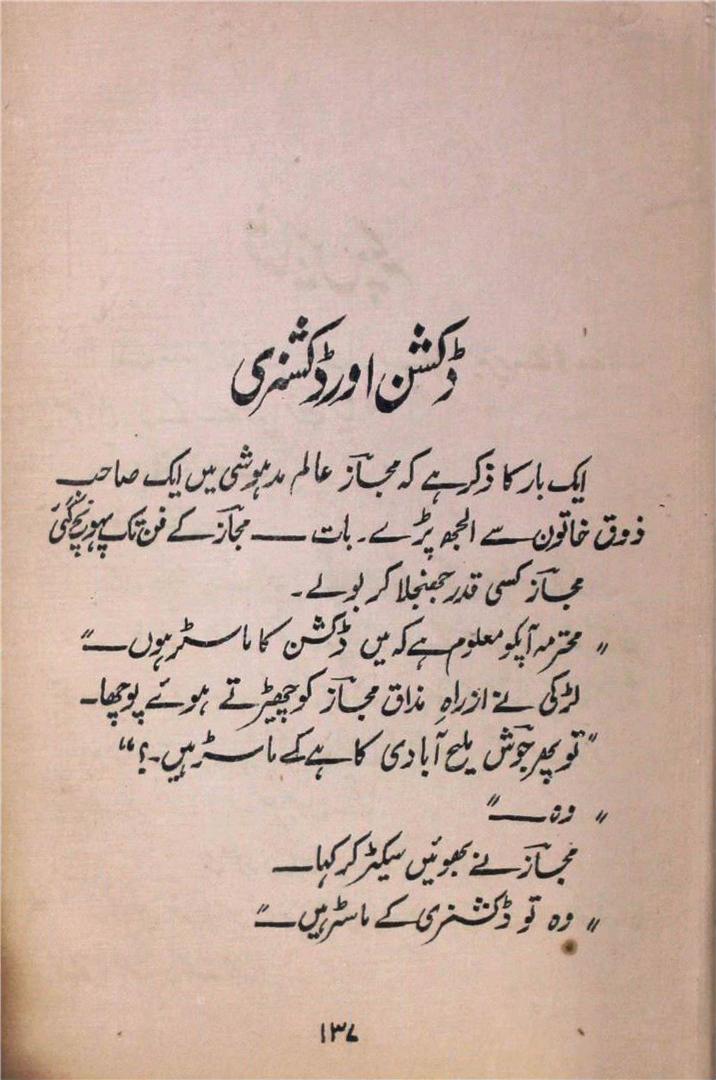 ڈکشن اور ڈکشنری
ایک بار کا ذکر ہے کہ مجازؔ عالم مدہوشی میں ایک صاحب
ذوق خاتون سے الجھ پڑے۔ بات ــــ مجازؔ کے فن تک پہونچ گئی
مجازؔ کسی قدر جھنجلا کر بولے۔
"محترمہ آپکو معلوم ہے کہ میں ڈکشن کا ماسٹر ہوں ــــ"
لڑکی نے از راہِ مذاق مجازؔ کو چھیڑتے ہوئے پوچھا۔
"تو پھر جوشؔ ملیح آبادی کاہے کے ماسٹر ہیں۔؟"
"وہ ــــ"
مجازؔ نے بھوئیں سیکٹر کر کہا ــــ
"وہ تو ڈکشنری کے ماسٹر ہیں ــــ"
۱۳۷